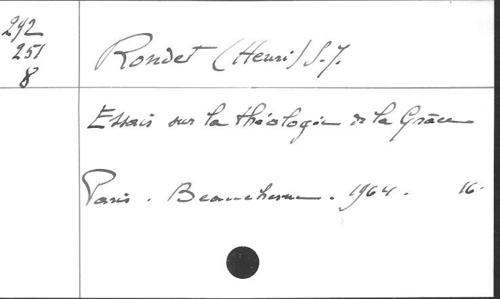 292
251
8
Rondet (Henri) S.J.
Essais sur la théologie de la Grâce
Paris. Beauchesne. 1964. 16.